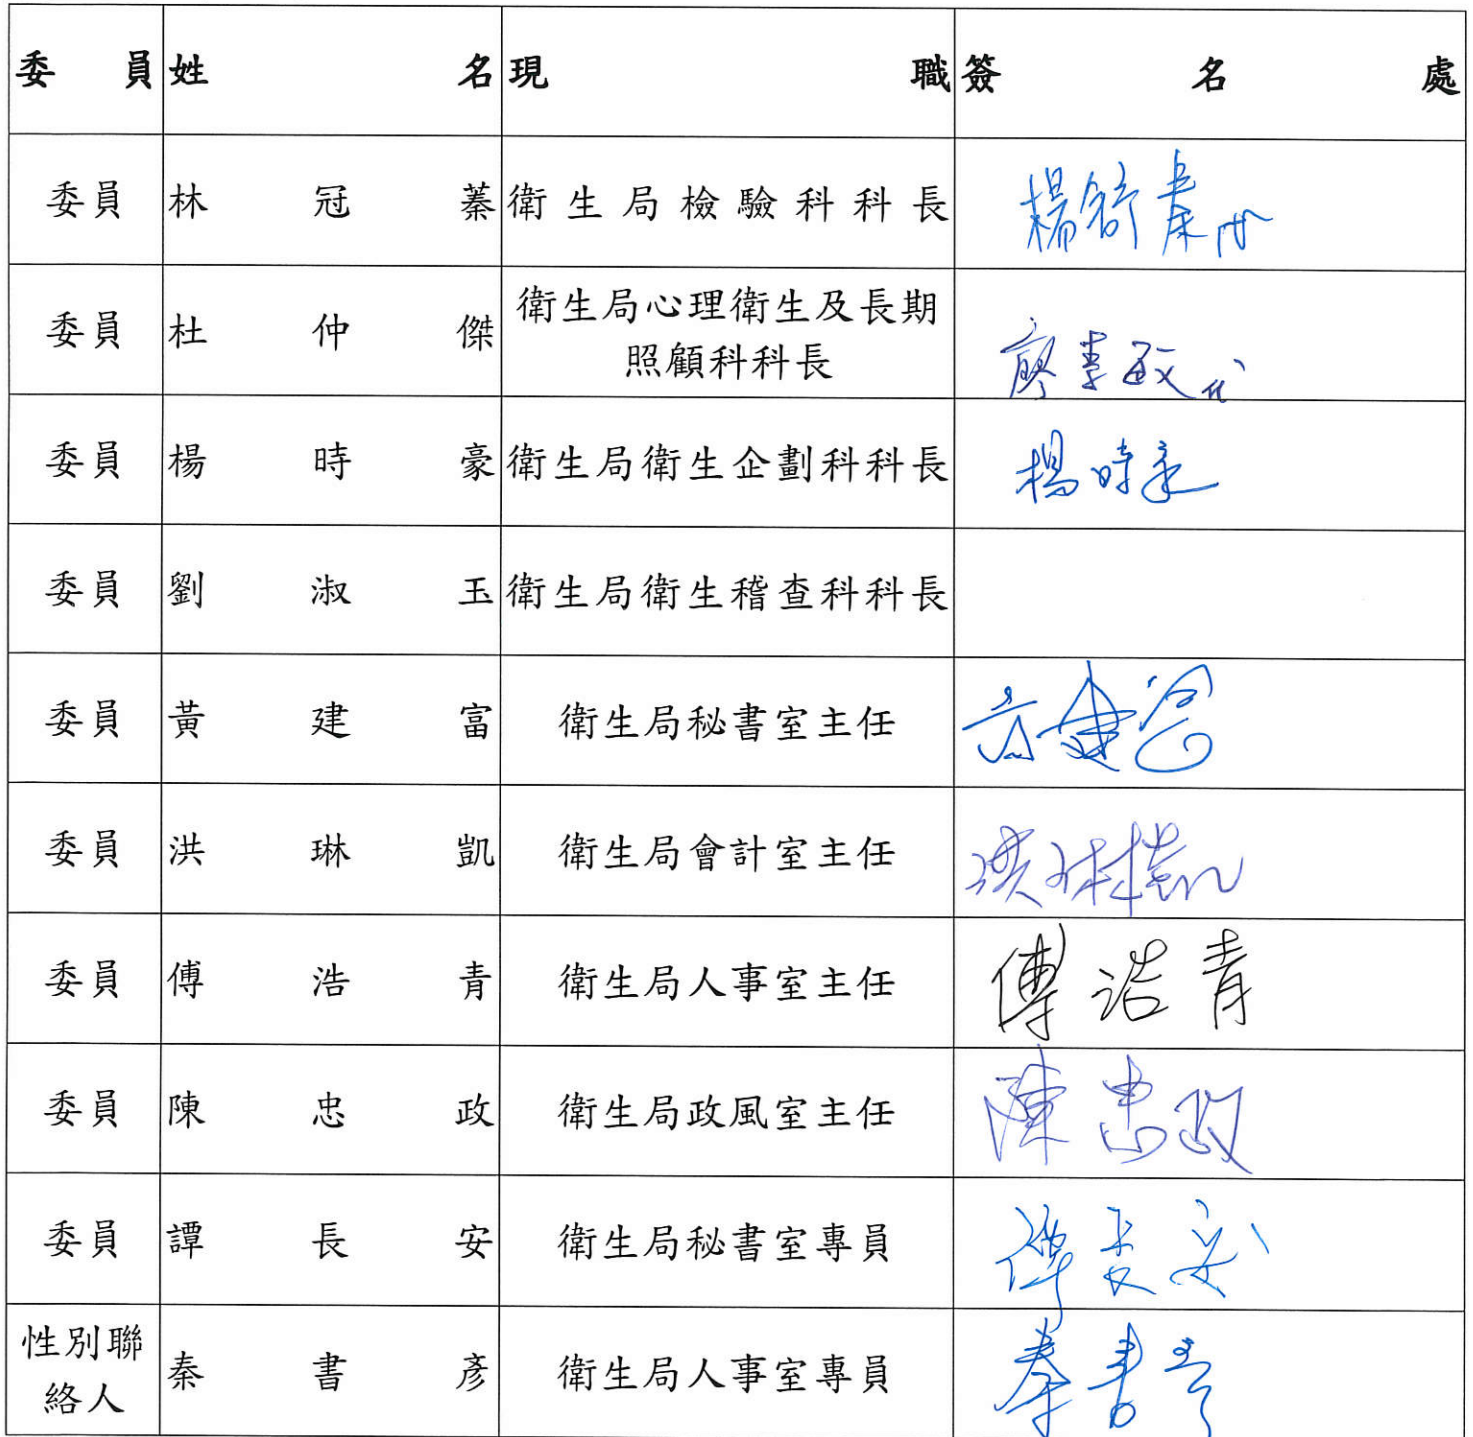 委員 姓名 現職 簽名處
委員 林冠蓁 衛生局檢驗科科長 楊
委員 杜仲傑 衛生局心理衛生及長期
照顧科科長 廖 敏代
委員 楊時豪 衛生局衛生企劃科科長 楊時豪
委員 劉淑玉 衛生局衛生稽查科科長
委員 黃建富 衛生局秘書室主任 黃建富
委員 洪琳凱 衛生局會計室主任 洪琳凱
委員 傅浩青 衛生局人事室主任 傅浩青
委員 陳忠政 衛生局政風室主任 陳忠政
委員 譚長安 衛生局秘書室專員 譚長安
性別聯
絡人 秦書彥 衛生局人事室專員 秦書彥